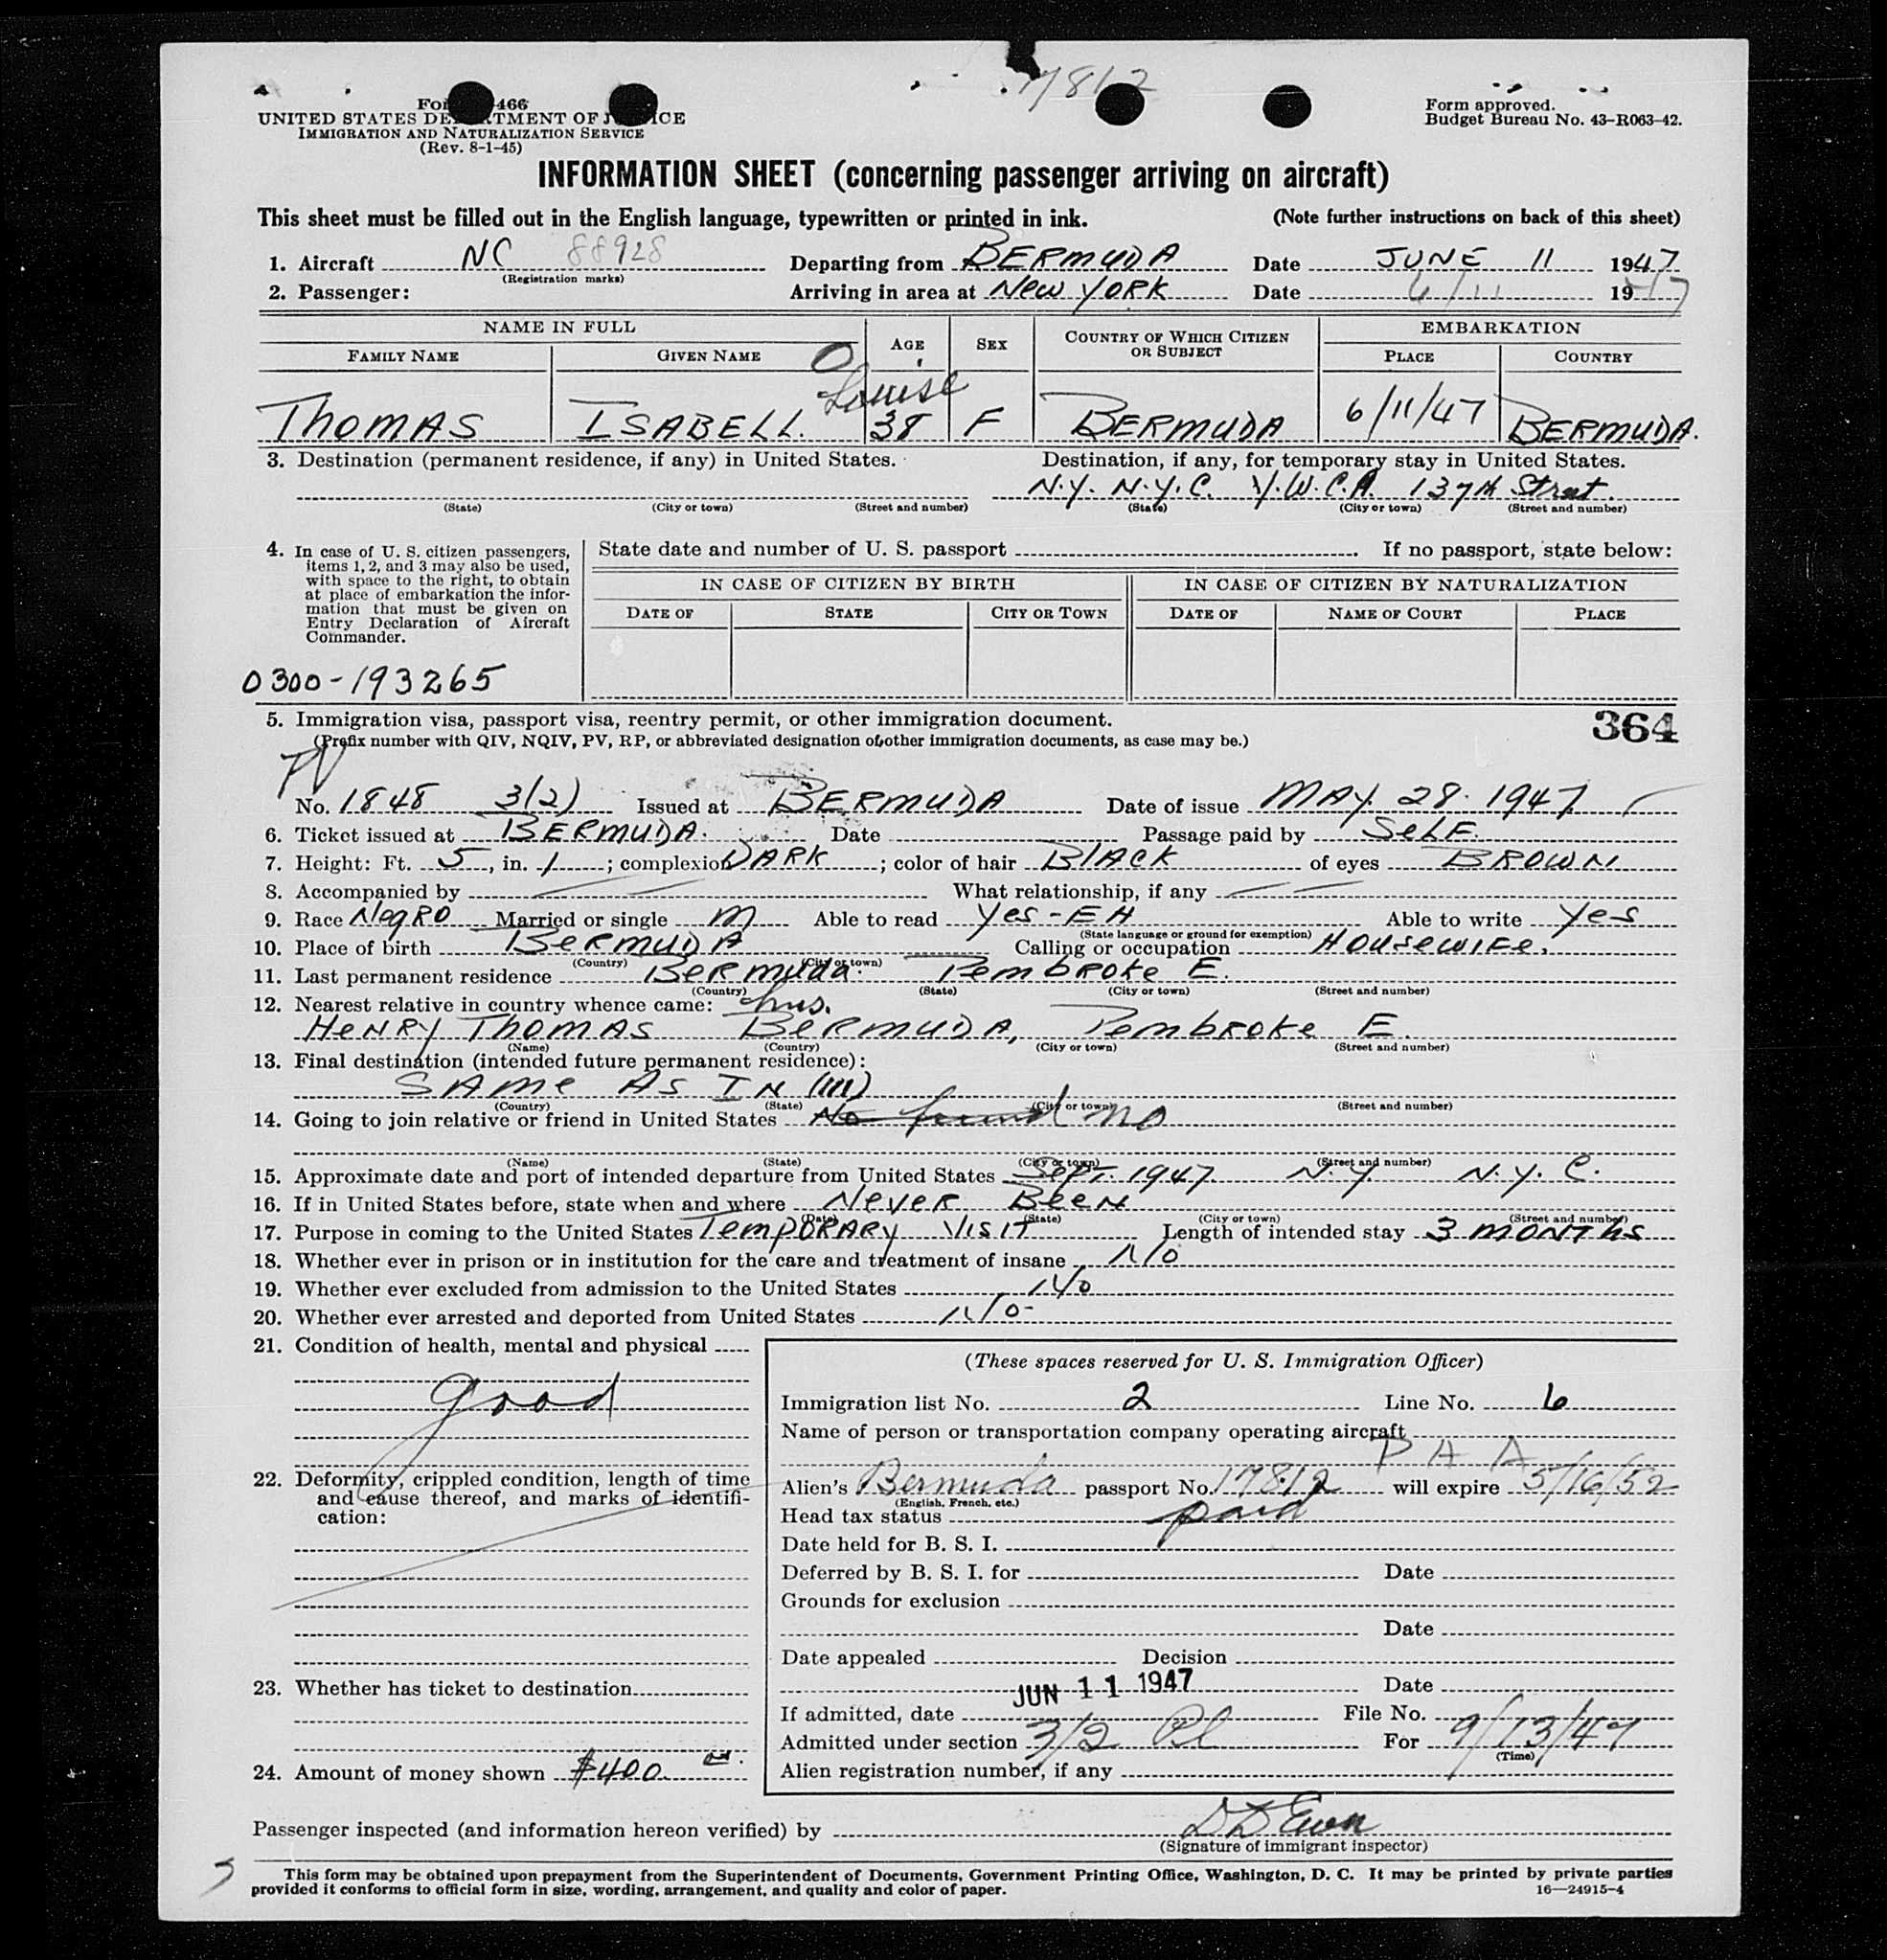 17812
Form 466
UNITED STATES DEPARTMENT OF JUSTICE
IMMIGRATION AND NATURALIZATION SERVICE
(Rev. 8-1-45)
Form approved.
Budget Bureau No. 43-R063-42.
INFORMATION SHEET (concerning passenger arriving on aircraft)
This sheet must be filled out in the English language, typewritten or printed in ink. (Note further instructions on back of this sheet)
1. Aircraft NC 88928 Departing from BERMUDA Date JUNE 11 1947
(Registration marks)
2. Passenger: Arriving in area at NEW YORK Date 6/11 1947
NAME IN FULL AGE SEX COUNTRY OF WHICH CITIZEN OR SUBJECT EMBARKATION
FAMILY NAME GIVEN NAME PLACE COUNTRY
O
Louise
THOMAS ISABELL. 38 F BERMUDA 6/11/47 BERMUDA.
3. Destination (permanent residence, if any) in United States. Destination, if any, for temporary stay in United States.
N.Y. N.Y.C. Y.W.C.A. 137th Street.
(State) (City or town) (Street and number) (State) (City or town) (Street and number)
4. In case of U. S. citizen passengers,
items 1, 2, and 3 may also be used,
with space to the right, to obtain
at place of embarkation the infor-
mation that must be given on
Entry Declaration of Aircraft
Commander.
State date and number of U. S. passport . If no passport, state below:
IN CASE OF CITIZEN BY BIRTH IN CASE OF CITIZEN BY NATURALIZATION
DATE OF STATE CITY OR TOWN DATE OF NAME OF COURT PLACE
0300-193265
5. Immigration visa, passport visa, reentry permit, or other immigration document. 364
(Prefix number with QIV, NQIV, PV, RP, or abbreviated designation of other immigration documents, as case may be.)
PV
No. 1848 3(2) Issued at BERMUDA Date of issue MAY. 28. 1947
6. Ticket issued at BERMUDA. Date Passage paid by SELF.
7. Height: Ft. 5, in. 1; complexion DARK; color of hair BLACK of eyes BROWN
8. Accompanied by What relationship, if any
9. Race NegRO Married or single M Able to read Yes-EH Able to write Yes
(State language or ground for exemption)
10. Place of birth BERMUDA Calling or occupation HOUSEWIFE.
(Country) (City or town)
11. Last permanent residence BERMUDA. Pembroke E.
(Country) (State) (City or town) (Street and number)
12. Nearest relative in country whence came: hus.
HENRY THOMAS BERMUDA, Pembroke E.
(Name) (Country) (City or town) (Street and number)
13. Final destination (intended future permanent residence):
SAME AS IN (111)
(Country) (State) (City or town) (Street and number)
14. Going to join relative or friend in United States No friend no
(Name) (State) (City or town) (Street and number)
15. Approximate date and port of intended departure from United States Sept. 1947. N.Y. N.Y.C.
16. If in United States before, state when and where NEVER BEEN
(Date) (State) (City or town) (Street and number)
17. Purpose in coming to the United States TEMPORARY VISIT Length of intended stay 3 MONTHS
18. Whether ever in prison or in institution for the care and treatment of insane NO
19. Whether ever excluded from admission to the United States NO
20. Whether ever arrested and deported from United States NO-
21. Condition of health, mental and physical
good
22. Deformity, crippled condition, length of time
and cause thereof, and marks of identifi-
cation:
23. Whether has ticket to destination
24. Amount of money shown $400.
(These spaces reserved for U. S. Immigration Officer)
Immigration list No. 2 Line No. 6
Name of person or transportation company operating aircraft
P A A
Alien's Bermuda passport No. 17812 will expire 5/16/52
(English, French, etc.)
Head tax status paid
Date held for B. S. I.
Deferred by B. S. I. for Date
Grounds for exclusion
Date
Date appealed Decision
JUN 11 1947 Date
If admitted, date File No.
Admitted under section 3/2 Pl For 9/13/47
(Time)
Alien registration number, if any
Passenger inspected (and information hereon verified) by
(Signature of immigrant inspector)
This form may be obtained upon prepayment from the Superintendent of Documents, Government Printing Office, Washington, D. C. It may be printed by private parties
provided it conforms to official form in size, wording, arrangement, and quality and color of paper. 16—24915-4